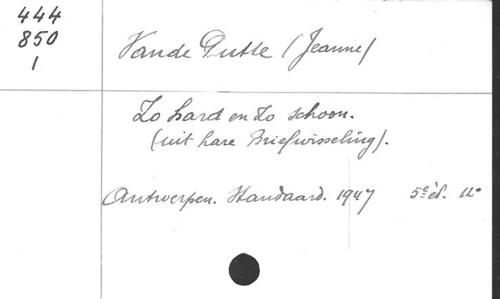 444
850
1
Van de Putte (Jeanne)
Zo hard en zo schoon.
(uit hare Briefwisseling).
Antwerpen. Standaard. 1947 5e éd. 12°